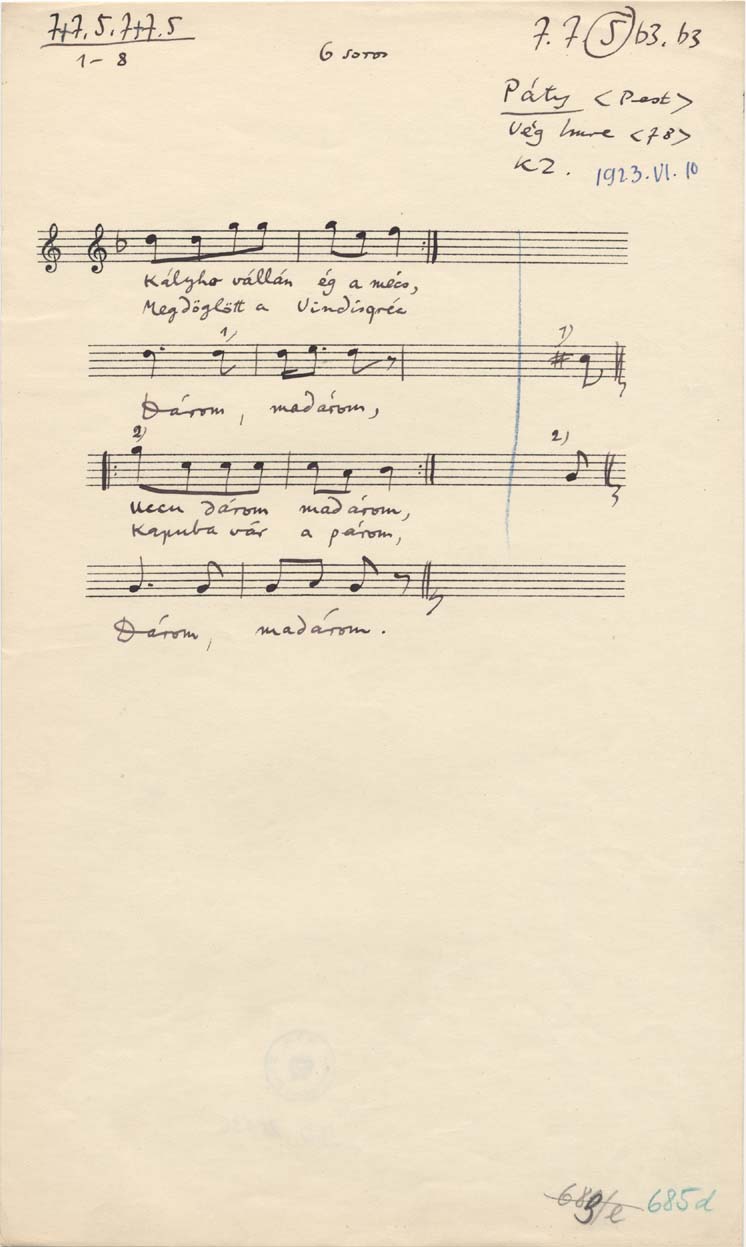 7+7. 5. 7+7. 5
1 - 8
6 soros
7. 7. 5 b3. b3
Páty <Pest>
Vég Imre <78>
KZ. 1923. VI. 10
Kályha vállán ég a mécs,
Megdöglött a Vindisgréc
1) 1)
Dárom, madárom,
2) 2)
Uccu dárom madárom,
Kapuba vár a párom,
Dárom, madárom.
685d